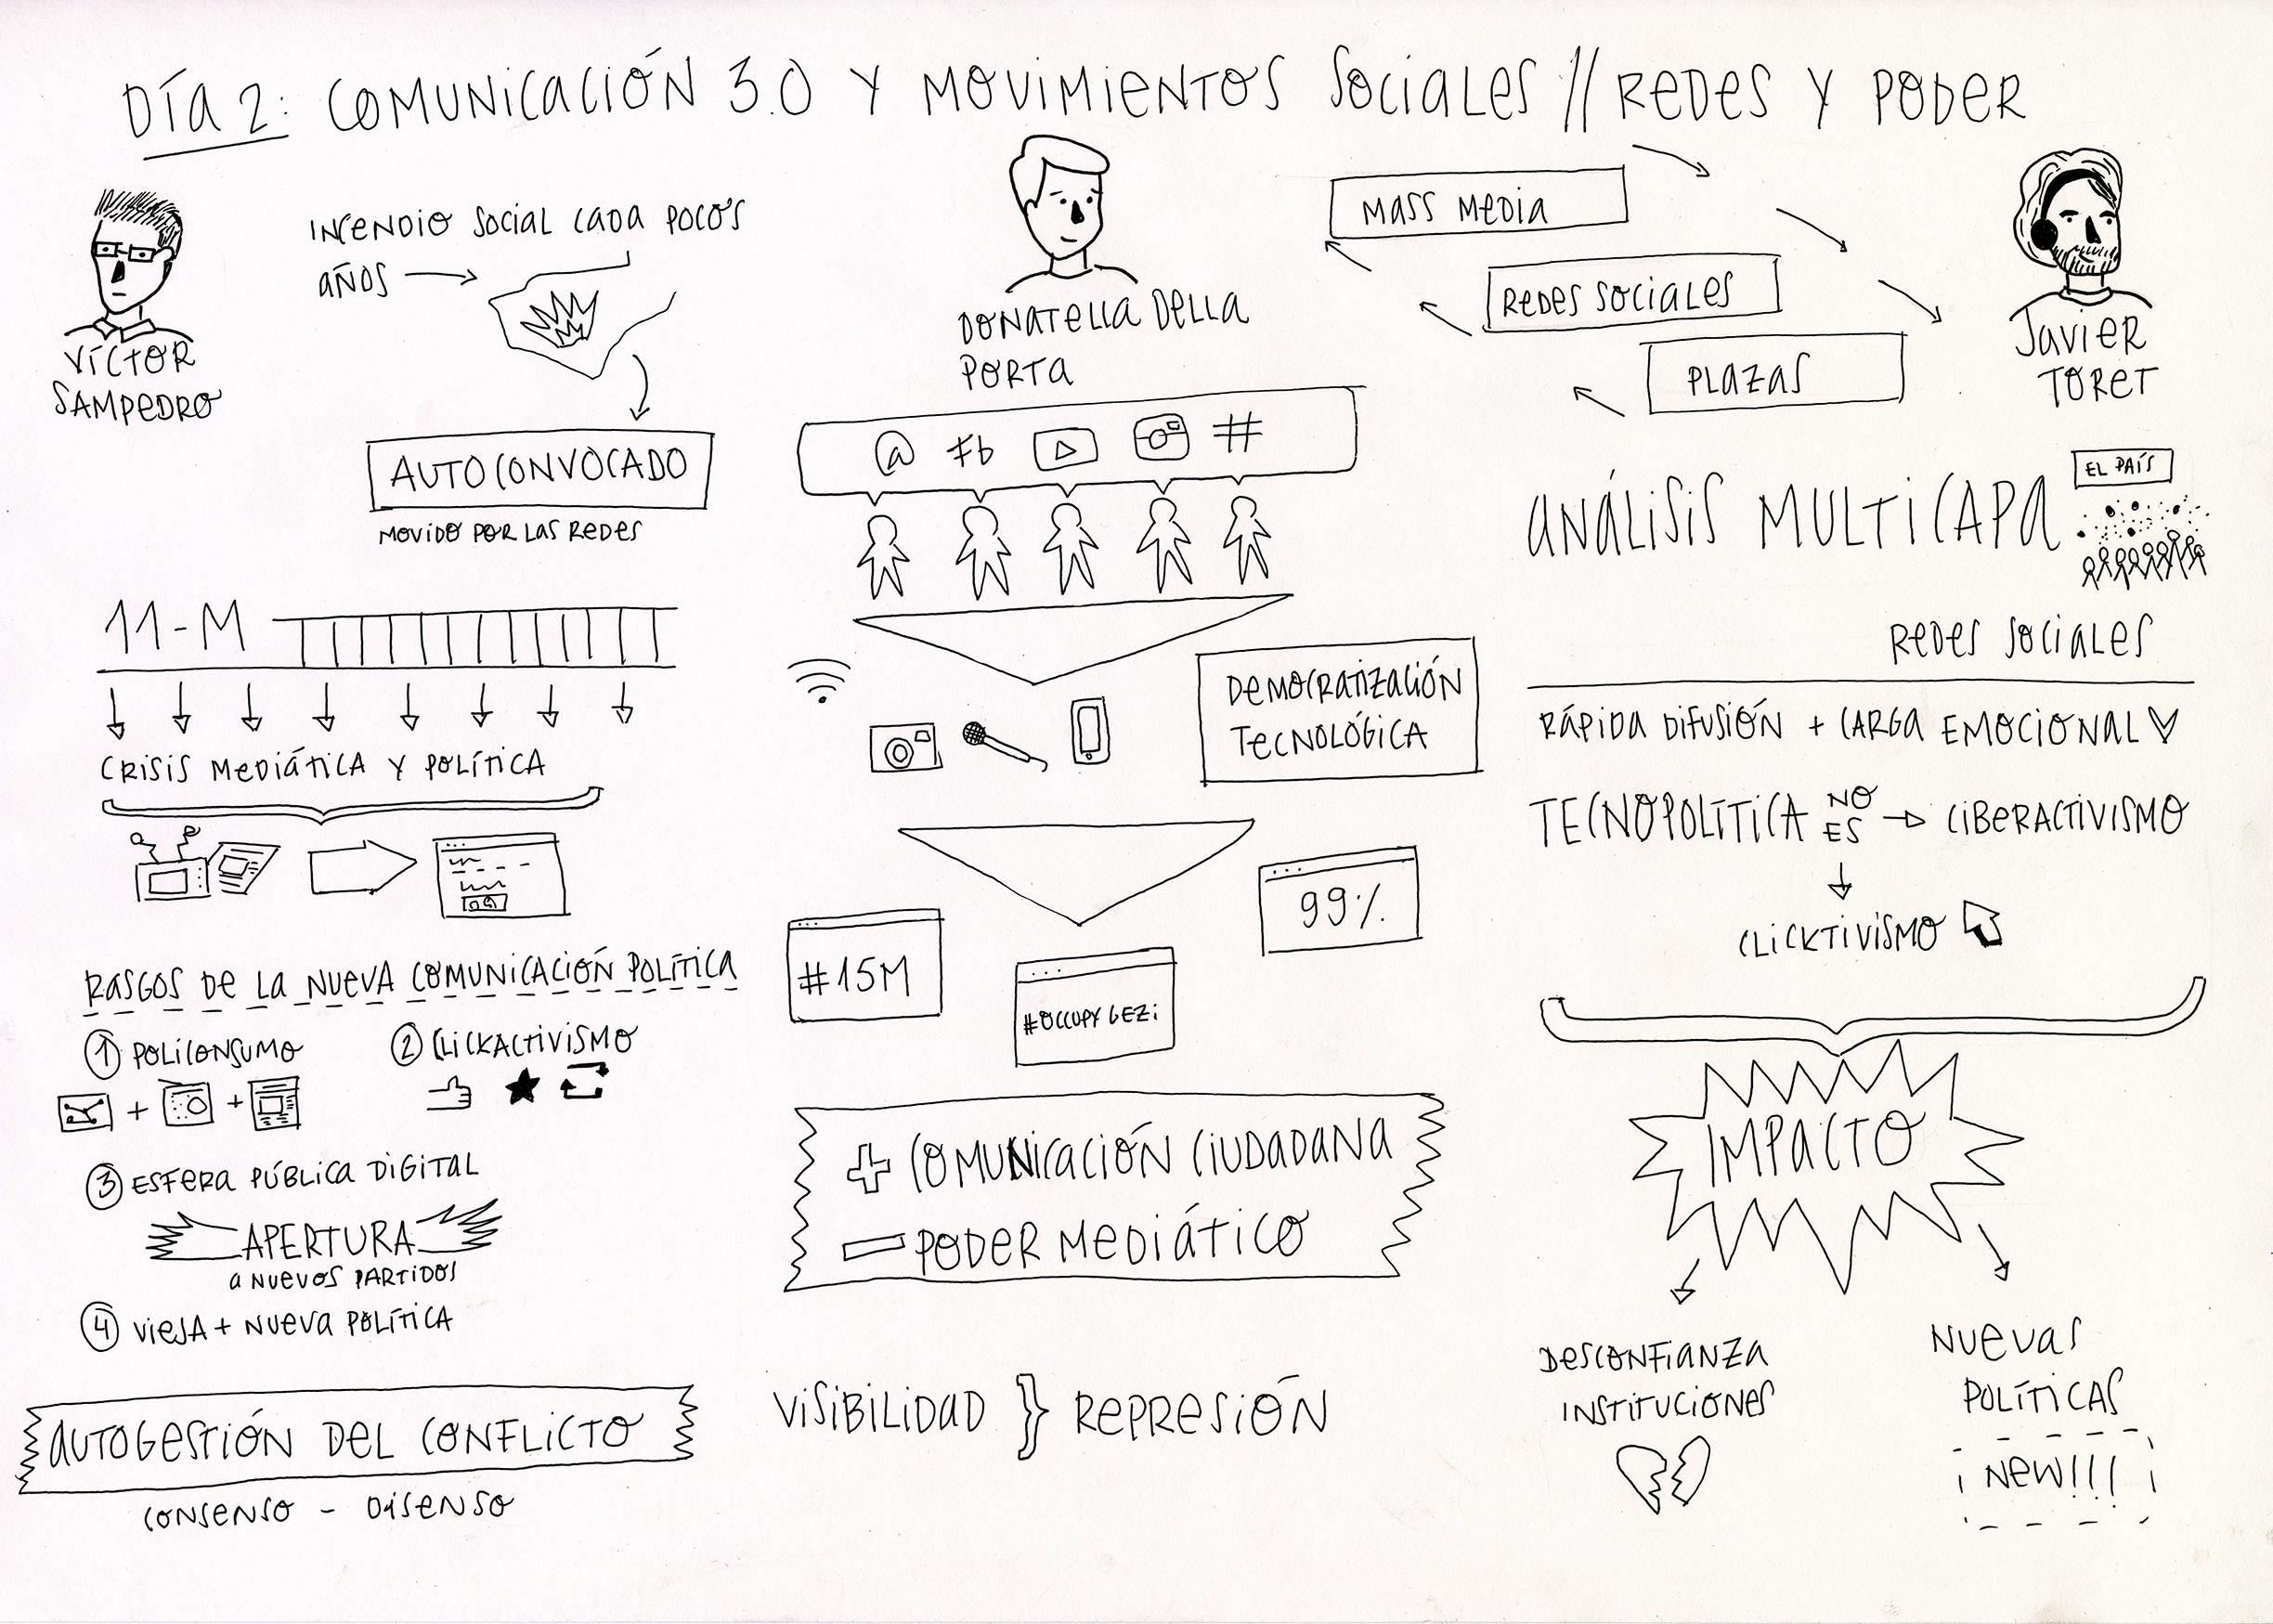 DÍA 2: COMUNICACIÓN 3.0 Y MOVIMIENTOS SOCIALES // REDES Y PODER
VÍCTOR
SAMPEDRO
INCENDIO SOCIAL CADA POCOS
AÑOS
AUTOCONVOCADO
MOVIDO POR LAS REDES
11-M
CRISIS MEDIÁTICA Y POLÍTICA
RASGOS DE LA NUEVA COMUNICACIÓN POLÍTICA
1 POLICONSUMO
2 CLICKACTIVISMO
+ +
3 ESFERA PÚBLICA DIGITAL
APERTURA
A NUEVOS PARTIDOS
4 VIEJA + NUEVA POLÍTICA
AUTOGESTIÓN DEL CONFLICTO
CONSENSO - DISENSO
DONATELLA DELLA
PORTA
@ Fb #
DEMOCRATIZACIÓN
TECNOLÓGICA
#15M
#OCCUPY GEZI
99%
+ COMUNICACIÓN CIUDADANA
- PODER MEDIÁTICO
VISIBILIDAD } REPRESIÓN
MASS MEDIA
REDES SOCIALES
PLAZAS
JAVIER
TORET
ANÁLISIS MULTICAPA
EL PAÍS
REDES SOCIALES
RÁPIDA DIFUSIÓN + CARGA EMOCIONAL
TECNOPOLÍTICA NO ES → CIBERACTIVISMO
CLICKTIVISMO
IMPACTO
DESCONFIANZA
INSTITUCIONES
NUEVAS
POLÍTICAS
¡NEW!!!